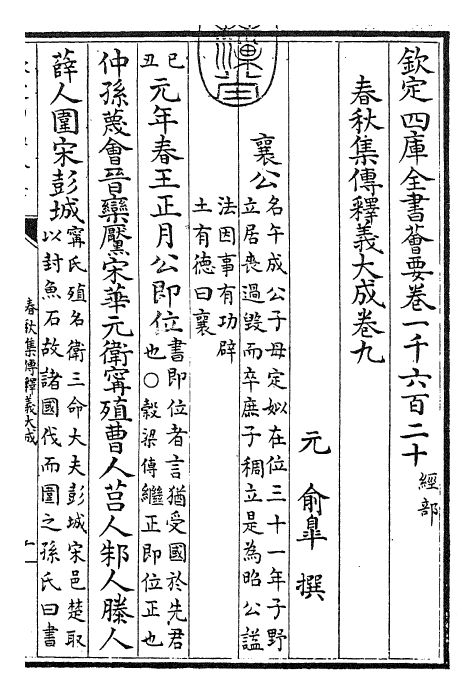 欽定四庫全書薈要卷一千六百二十 經部
春秋集傳釋義大成卷九
元 俞臯 撰
襄公 名午成公子母定姒在位三十一年子野
立居喪過毀而卒庶子稠立是為昭公諡
法因事有功辟
土有德曰襄
己丑 元年春王正月公即位 書即位者言猶受國於先君
也○穀梁傳繼正即位正也
仲孫蔑會晉欒黶宋華元衛甯殖曹人莒人邾人滕人
薛人圍宋彭城 甯氏殖名衛三命大夫彭城宋邑楚取
以封魚石故諸國伐而圍之孫氏曰書
春秋集傳釋義大成